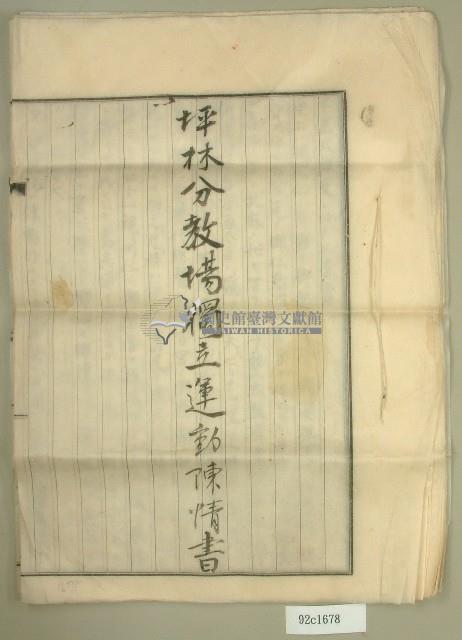 坪林分教場獨立運動陳情書
國史館臺灣文獻館
TAIWAN HISTORICA
92c1678